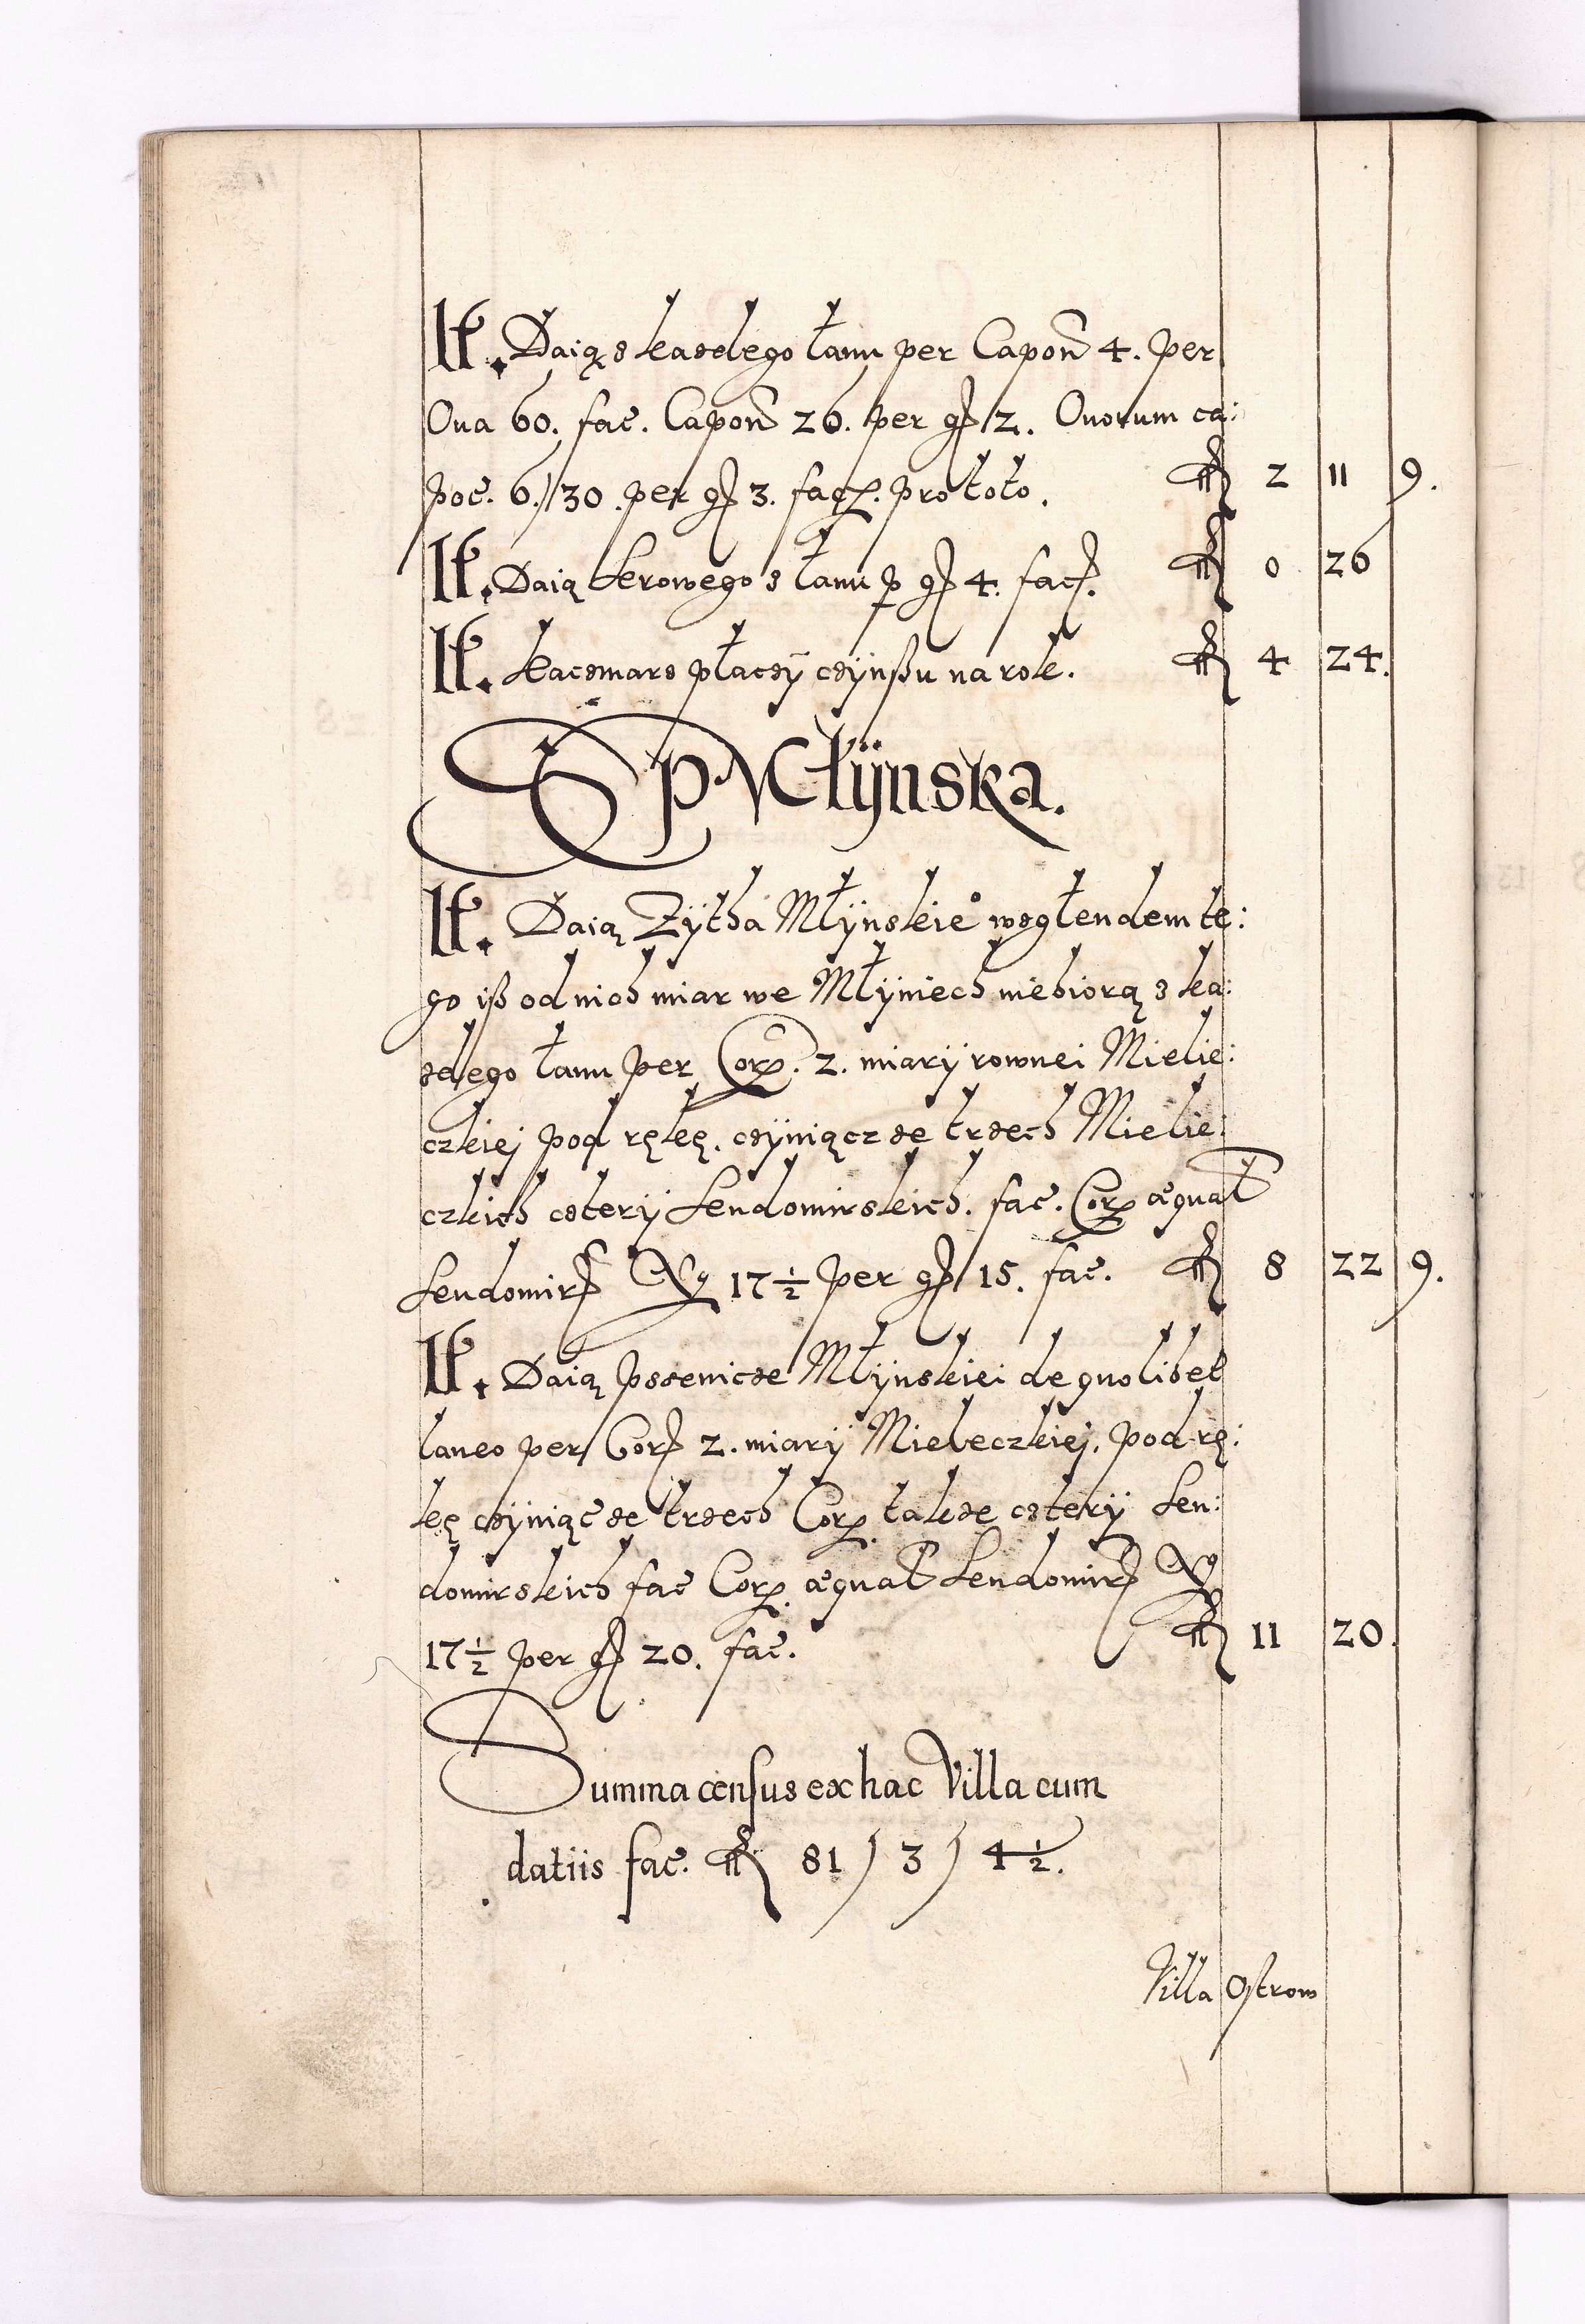 It. Daią z kazdego łanu per Capon 4. per
Oua 60. fac. Capon 26. per gr 2. Ouorum ca:
poc. 6 / 30 per gr 3. facp. pro toto. 2 11 9.
It. Daią Serowego z łanu p gr 4. fac. 0 26
It. Kaczmarz płaczÿ czÿnßu na rok. 4 24.
Sp Młÿnska.
It. Daią Zÿtha Młÿnskieº wzglendem te:
go iß od nich miar we Młÿniech niebiorą z ka:
zdego łanu per Corp. 2. miarÿ rownei Mielie:
czkiej pod rękę. czÿniącz ze trzech Mielie:
czkich czterÿ Sendomirskich. fac. Corp æqual
Sendomir 17 ½ per gr 15. fac. 8 22 9.
It. Daią Pszenicze Młÿnskiei de quolibet
laneo per Cor 2. miarÿ Mieleczkiej. pod rę:
kę czÿniąc ze trzech Corp. takze czterÿ Sen:
domirskich fac Corp. æqual Sendomir
17 ½ per gr 20. fac. 11 20.
Summa census ex hac Villa cum
datiis fac. 81 / 3 / 4 ½.
Villa Ostrow